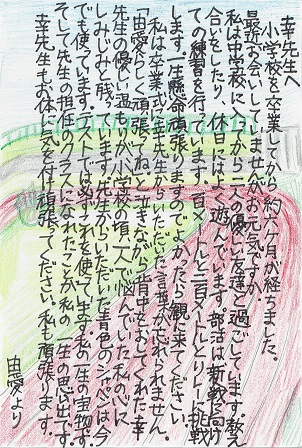 幸先生へ
小学校を卒業してから約八ヶ月が経ちました。
最近お会いしていませんがお元気ですか。
私は中学校に入ってから二人の優しい友達と過ごしています。教え
合いをしたり、休日にはよく遊んでいます。部活は新戦に向け
ての練習を行っています。百メートルと二百メートルとリレーに挑戦
します。一生懸命頑張りますのでよかったら観に来てください。
私は卒業式で幸先生からいただいた言葉が忘れられません。
「由愛らしく頑張ってね」と泣きながら背中をおしてくれた幸
先生の優しい温もりが小学校の頃一人で悩んでいた私の心に
しみじみと残っています。先生からいただいた青色のシャーペンは今
でも使っています。テストでは必ずこれを使っています。私の一生の宝物です。
そして先生の担任のクラスになれたことが私の一生の思い出です。
幸先生もお体に気を付け頑張ってください。私も頑張ります。
由愛より